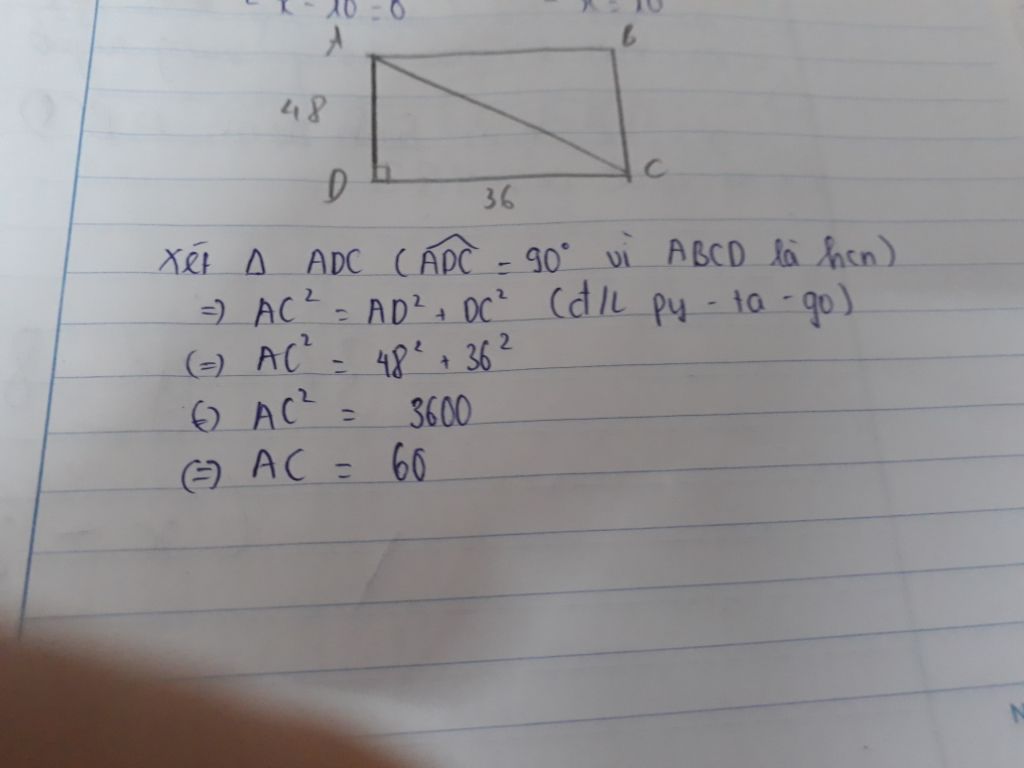 - x - 10 = 0 - x = 10
A B
48
D C
36
Xét Δ ADC ( \widehat{ADC} = 90° vì ABCD là hcn)
=) AC² = AD² + DC² (đ/L py - ta - go)
(=) AC² = 48² + 36²
(=) AC² = 3600
(=) AC = 60